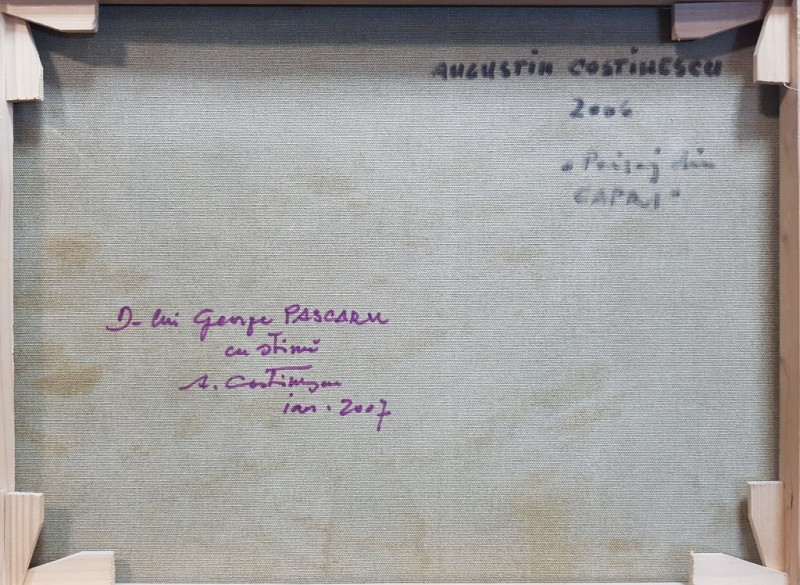 AUGUSTIN COSTINESCU
2006
„Peisaj din
CAPRI"
D-lui George PASCARU
cu stimă
A. Costinescu
ian. 2007